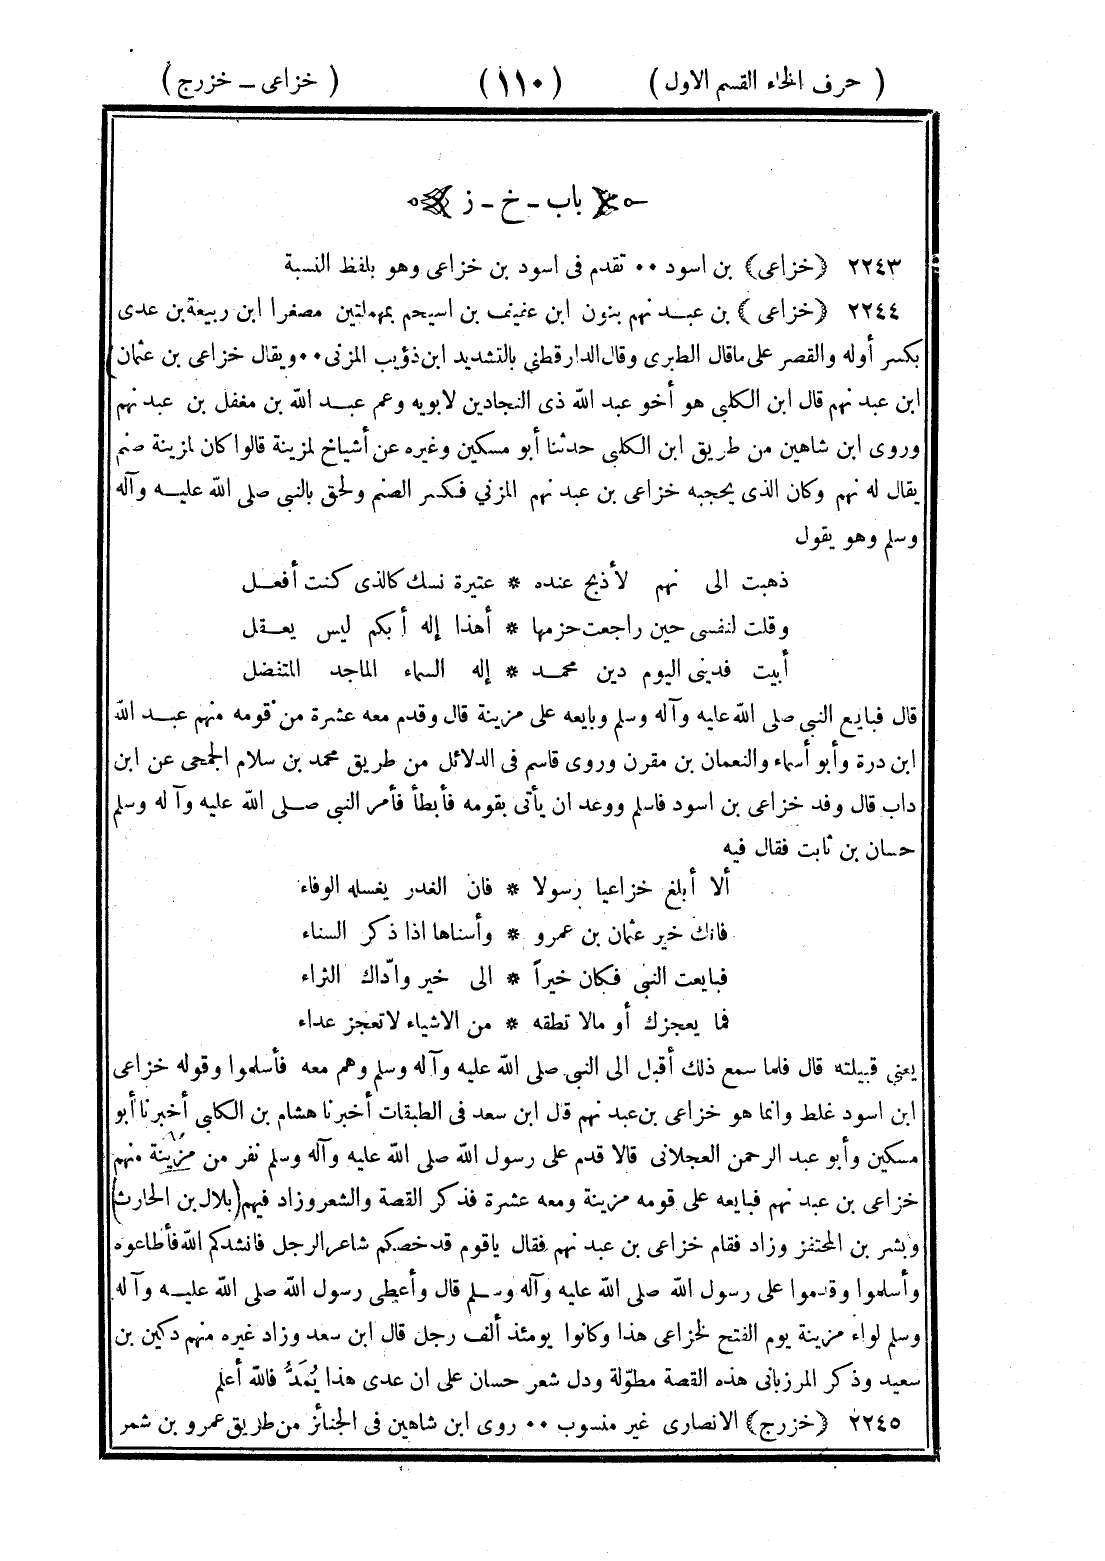 ( حرف الخاء القسم الاول ) (١١٠) ( خزاعى ــ خزرج )
باب ـ خ ـ ز
٢٢٤٣ (خزاعى) بن اسود ٠٠ تقدم فى اسود بن خزاعى وهو بلفظ النسبة
٢٢٤٤ (خزاعى) بن عبــد نهم بنون ابن عفيف بن اسيحم بمهملتين مصغرا ابن ربيعة بن عدى
بكسر أوله والقصر على ماقال الطبرى وقال الدارقطني بالتشديد ابن ذؤيب المزنى ٠٠ ويقال خزاعى بن عثمان)
ابن عبد نهم قال ابن الكلبى هو أخو عبد الله ذى النجادين لابويه وعم عبــد الله بن مغفل بن عبد نهم
وروى ابن شاهين من طريق ابن الكلبى حدثنا أبو مسكين وغيره عن أشياخ لمزينة قالوا كان لمزينة صنم
يقال له نهم وكان الذى يحجبه خزاعى بن عبد نهم المزني فكسر الصنم ولحق بالنبى صلى الله عليــه وآله
وسلم وهو يقول
ذهبت الى نهم لأذبح عنده * عتيرة نسك كالذى كنت أفعــل
وقلت لنفسى حين راجعت حزمها * أهذا إله أبكم ليس يعــقل
أبيت فدينى اليوم دين محمــد * إله السماء الماجد المتفضل
قال فبايع النبي صلى الله عليه وآله وسلم وبايعه على مزينة قال وقدم معه عشرة من قومه منهم عبــد الله
ابن درة وأبو أسماء والنعمان بن مقرن وروى قاسم فى الدلائل من طريق محمد بن سلام الجمحى عن ابن
داب قال وفد خزاعى بن اسود فاسلم ووعد ان يأتى بقومه فأبطأ فأمر النبي صــلى الله عليه وآله وسلم
حسان بن ثابت فقال فيه
ألا أبلغ خزاعيا رسولا * فان الغدر يغسله الوفاء
فانك خير عثمان بن عمرو * وأسناها اذا ذكر السناء
فبايعت النبي فكان خيراً * الى خير وادّاك الثراء
فما يعجزك أو مالا تطقه * من الاشياء لاتعجز عداء
يعني قبيلته قال فلما سمع ذلك أقبل الى النبي صلى الله عليه وآله وسلم وهم معه فأسلموا وقوله خزاعى
ابن اسود غلط وانما هو خزاعى بن عبد نهم قال ابن سعد فى الطبقات أخبرنا هشام بن الكلبى أخبرنا أبو
مسكين وأبو عبد الرحمن العجلانى قالا قدم على رسول الله صلى الله عليه وآله وسلم نفر من مزينة منهم
خزاعى بن عبد نهم فبايعه على قومه مزينة ومعه عشرة فذكر القصة والشعر وزاد فيهم (بلال بن الحارث)
وبشر بن المحتفز وزاد فقام خزاعى بن عبد نهم فقال ياقوم قد خصكم شاعر الرجل فانشدكم الله فأطاعوه
وأسلموا وقدموا على رسول الله صلى الله عليه وآله وســلم قال وأعطى رسول الله صلى الله عليــه وآله
وسلم لواء مزينة يوم الفتح لخزاعى هذا وكانوا يومئذ ألف رجل قال ابن سعد وزاد غيره منهم دكين بن
سعيد وذكر المرزبانى هذه القصة مطوّلة ودل شعر حسان على ان عدى هذا يُمَدُّ فالله أعلم
٢٢٤٥ (خزرج) الانصارى غير منسوب ٠٠ روى ابن شاهين فى الجنائز من طريق عمرو بن شمر